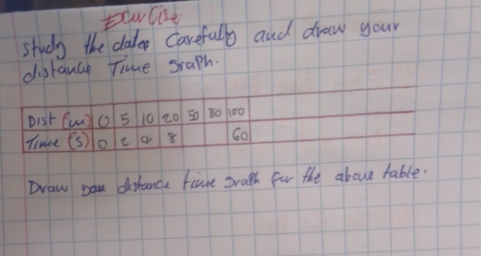 Exercise
Study the data Carefully and draw your
distance Time graph.
Dist (m) 0 5 10 20 50 80 100
Time (s) 0 2 4 8 60
Draw your distance time graph for the above table.